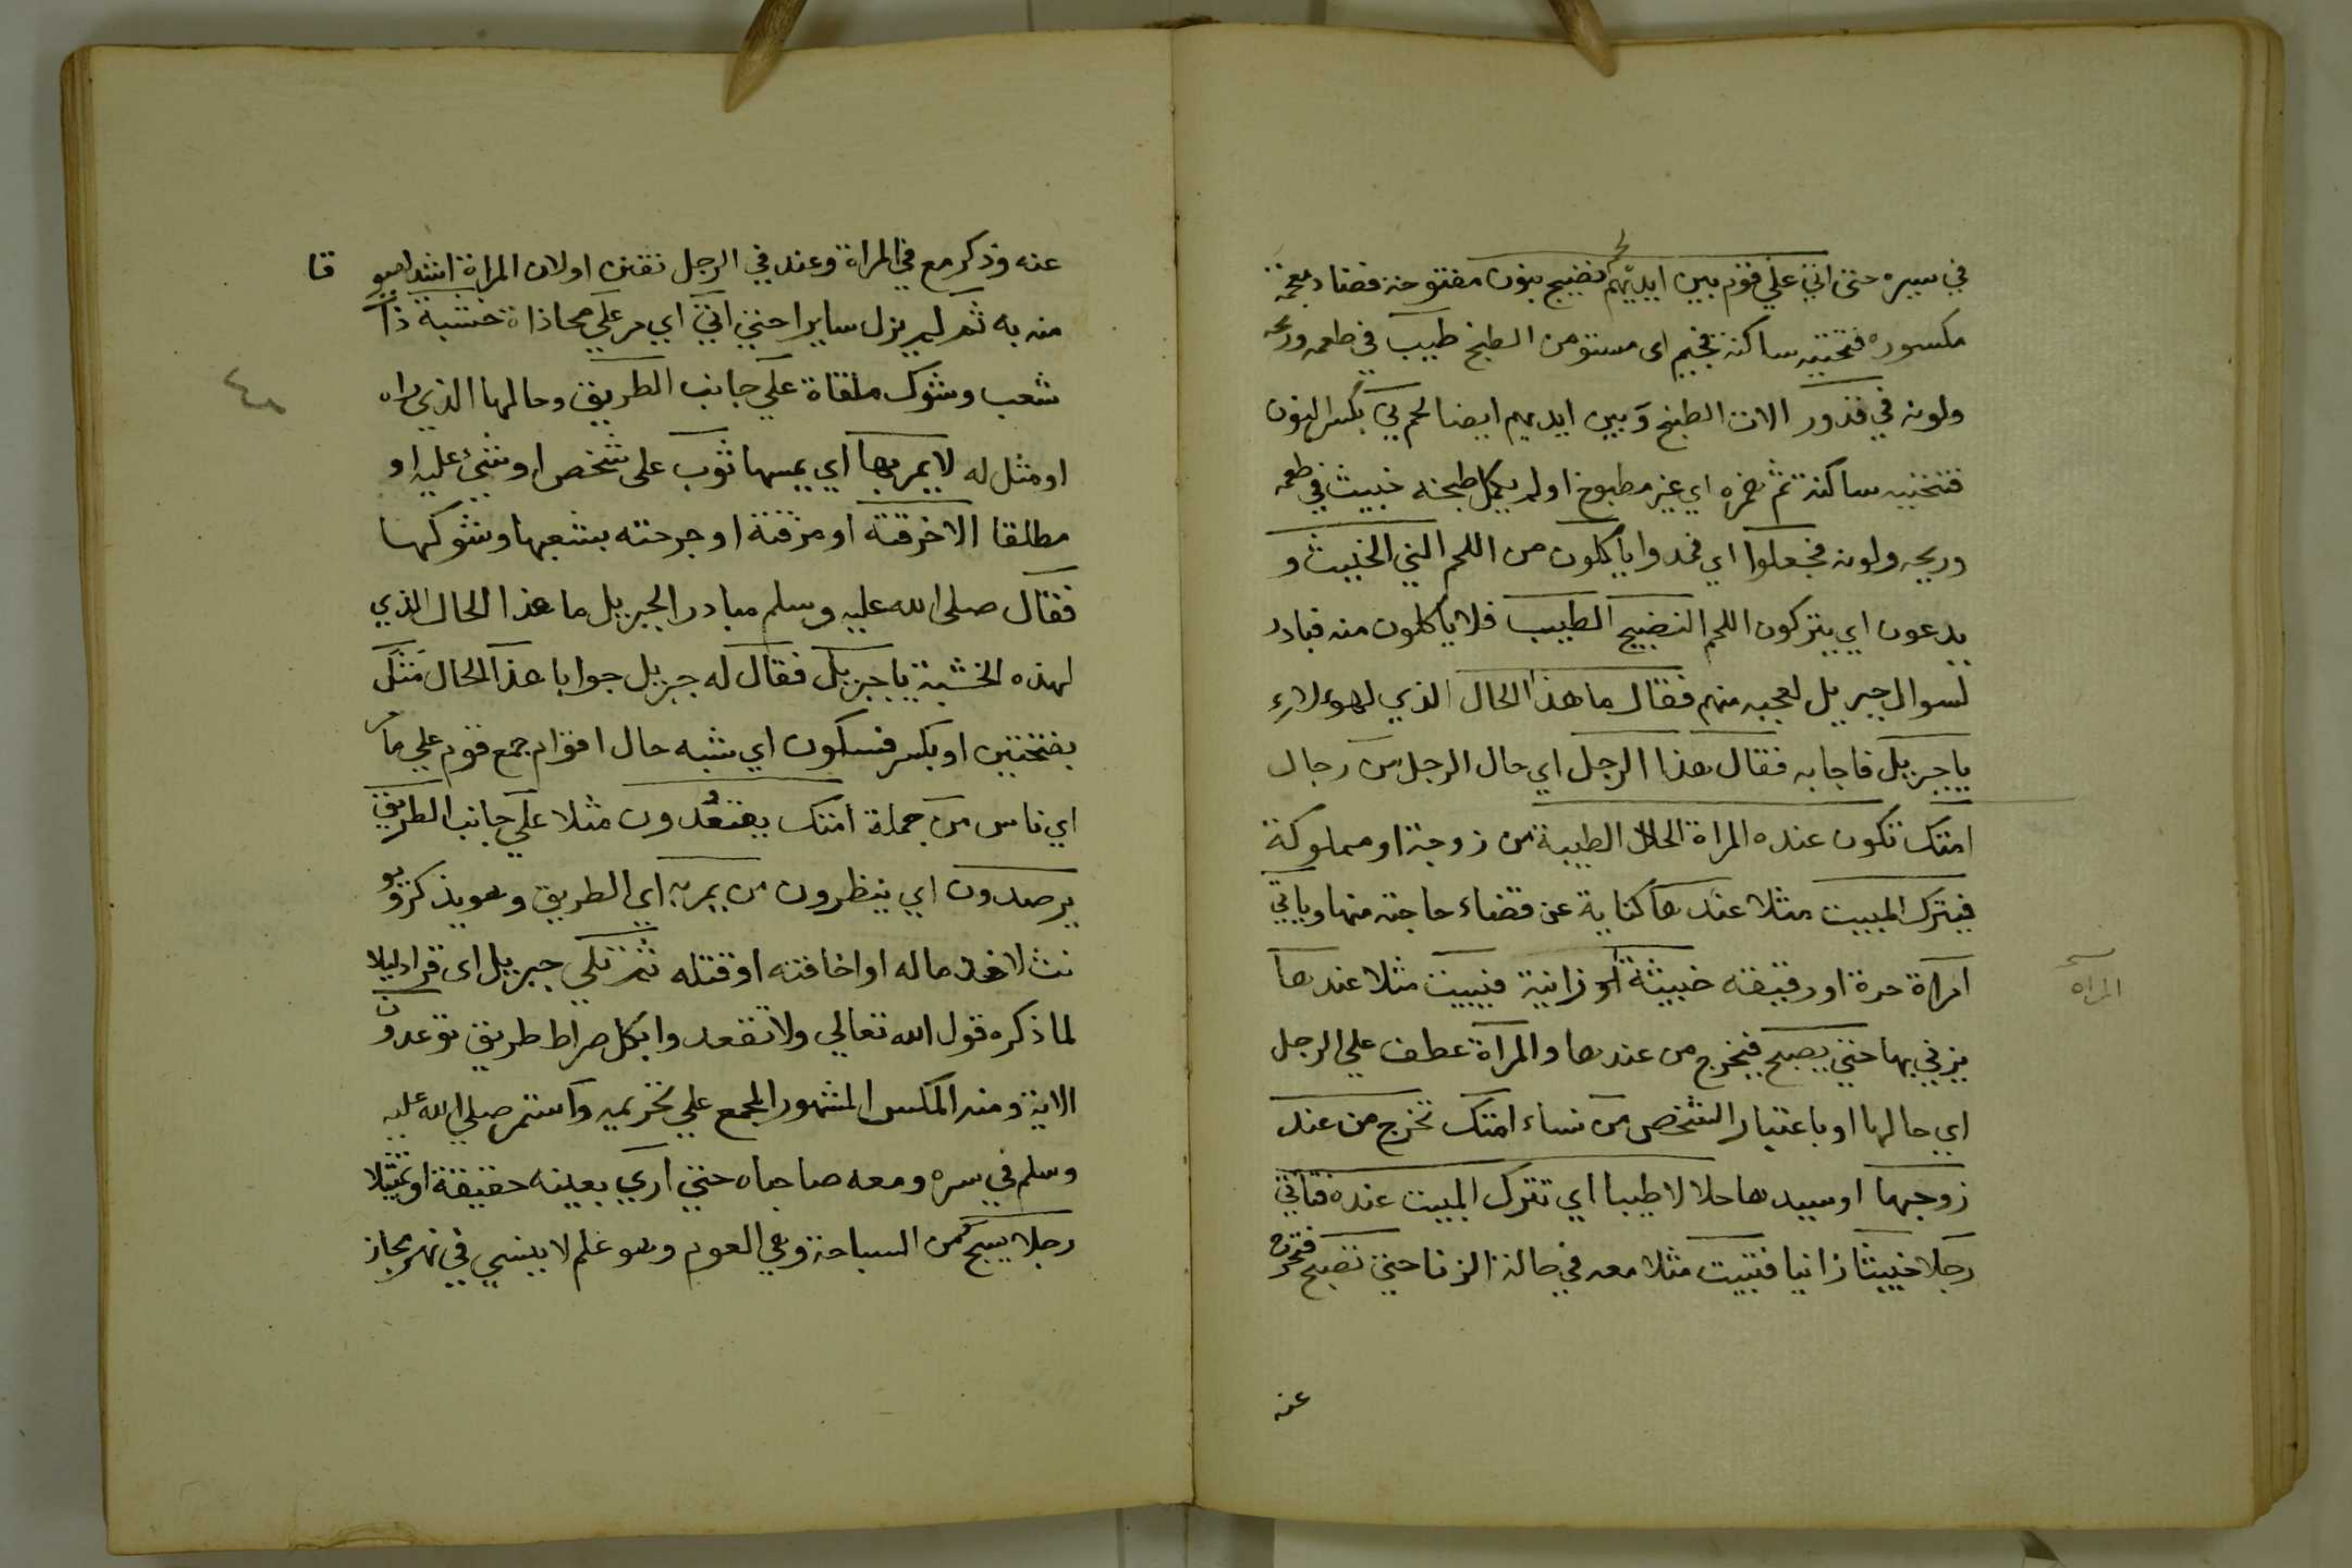 في سيره حتى اتي علي قوم بين ايديهم لحم نضيج بنون مفتوحة فضاد معجمة
مكسورة فتحتيه ساكنة فجيم اى مستو من الطبخ طيب في طعمه وريحه
ولونه في قدور الات الطبخ وبين ايديهم ايضا لحم ني بكسر النون
فتحتيه ساكنة ثم همزه اي غير مطبوخ او لم يكمل طبخه خبيث في طعمه
وريحه ولونه فجعلوا اي قوم ياكلون من اللحم الني الخبيث و
يدعون اي يتركون اللحم النضيج الطيب فلا ياكلون منه فبادر
لسوال جبريل لعجبه منهم فقال ما هذا الحال الذي لهولاء
يا جبريل فاجابه فقال هذا الرجل اي حال الرجل من رجال
امتك تكون عنده المراة الحلال الطيبة من زوجة او مملوكة
فيترك المبيت مثلا عندها كناية عن قضاء حاجته منها وياتي
امراة حرة او رقيقة خبيثة او زانية فيبيت مثلا عندها
المراه
يزني بها حتي يصبح فيخرج من عندها والمراة عطف علي الرجل
اي حالها او باعتبار الشخص من نساء امتك تخرج من عند
زوجها او سيدها حلالا طيبا اي تترك المبيت عنده فتاتي
رجلا خبيثا زانيا فتبيت مثلا معه في حالة الزنا حتي تصبح فتخرج
عنه
عنه وذكر مع في المراة وعند في الرجل تفنن او لان المراة اشد لهو قا
منه به ثم لم يزل سايرا حتي اتي اي مر علي محاذاة خشبة ذات
شعب وشوك ملقاة علي جانب الطريق وحالها الذي راه
او مثل له لا يمر بها اي يمسها ثوب على شخص او شئ عليه او
مطلقا الا خرقته او مزقته او جرحته بشعبها وشوكها
فقال صلى الله عليه وسلم مبادرا لجبريل ما هذا الحال الذي
لهذه الخشبة يا جبريل فقال له جبريل جوابا هذا الحال مثل
بفتحتين او بكسر فسكون اي شبه حال اقوام جمع قوم علي ما مر
اي ناس من جملة امتك يقعدون مثلا علي جانب الطريق
يرصدون اي ينظرون من يمر به اي الطريق وهو يذكر ويو
نث لاخذ ماله او اخافته او قتله ثم تلي جبريل اى قرا دليلا
لما ذكره قول الله تعالي ولا تقعدوا بكل صراط طريق توعدون
الاية ومنه المكس المشهور المجمع علي تحريمه واستمر صلي الله عليه
وسلم في سيره ومعه صاحباه حتي اري بعينه حقيقة او تمثيلا
رجلا يسبح من السباحة وهي العوم وهو علم لا ينسي في نهر مجاز
٤٨